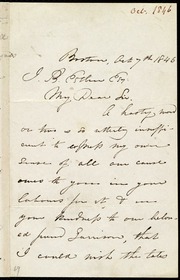 Oct. 1846
Boston, Oct 7th 1846
J. B. Estlin Esq
My Dear Sir,
A hasty word
or two is utterly insuffi-
cient to express my own
sense of all our cause
owes to you in your
labours for it, & in
your kindness to our belov-
ed friend Garrison, that
I could wish the late